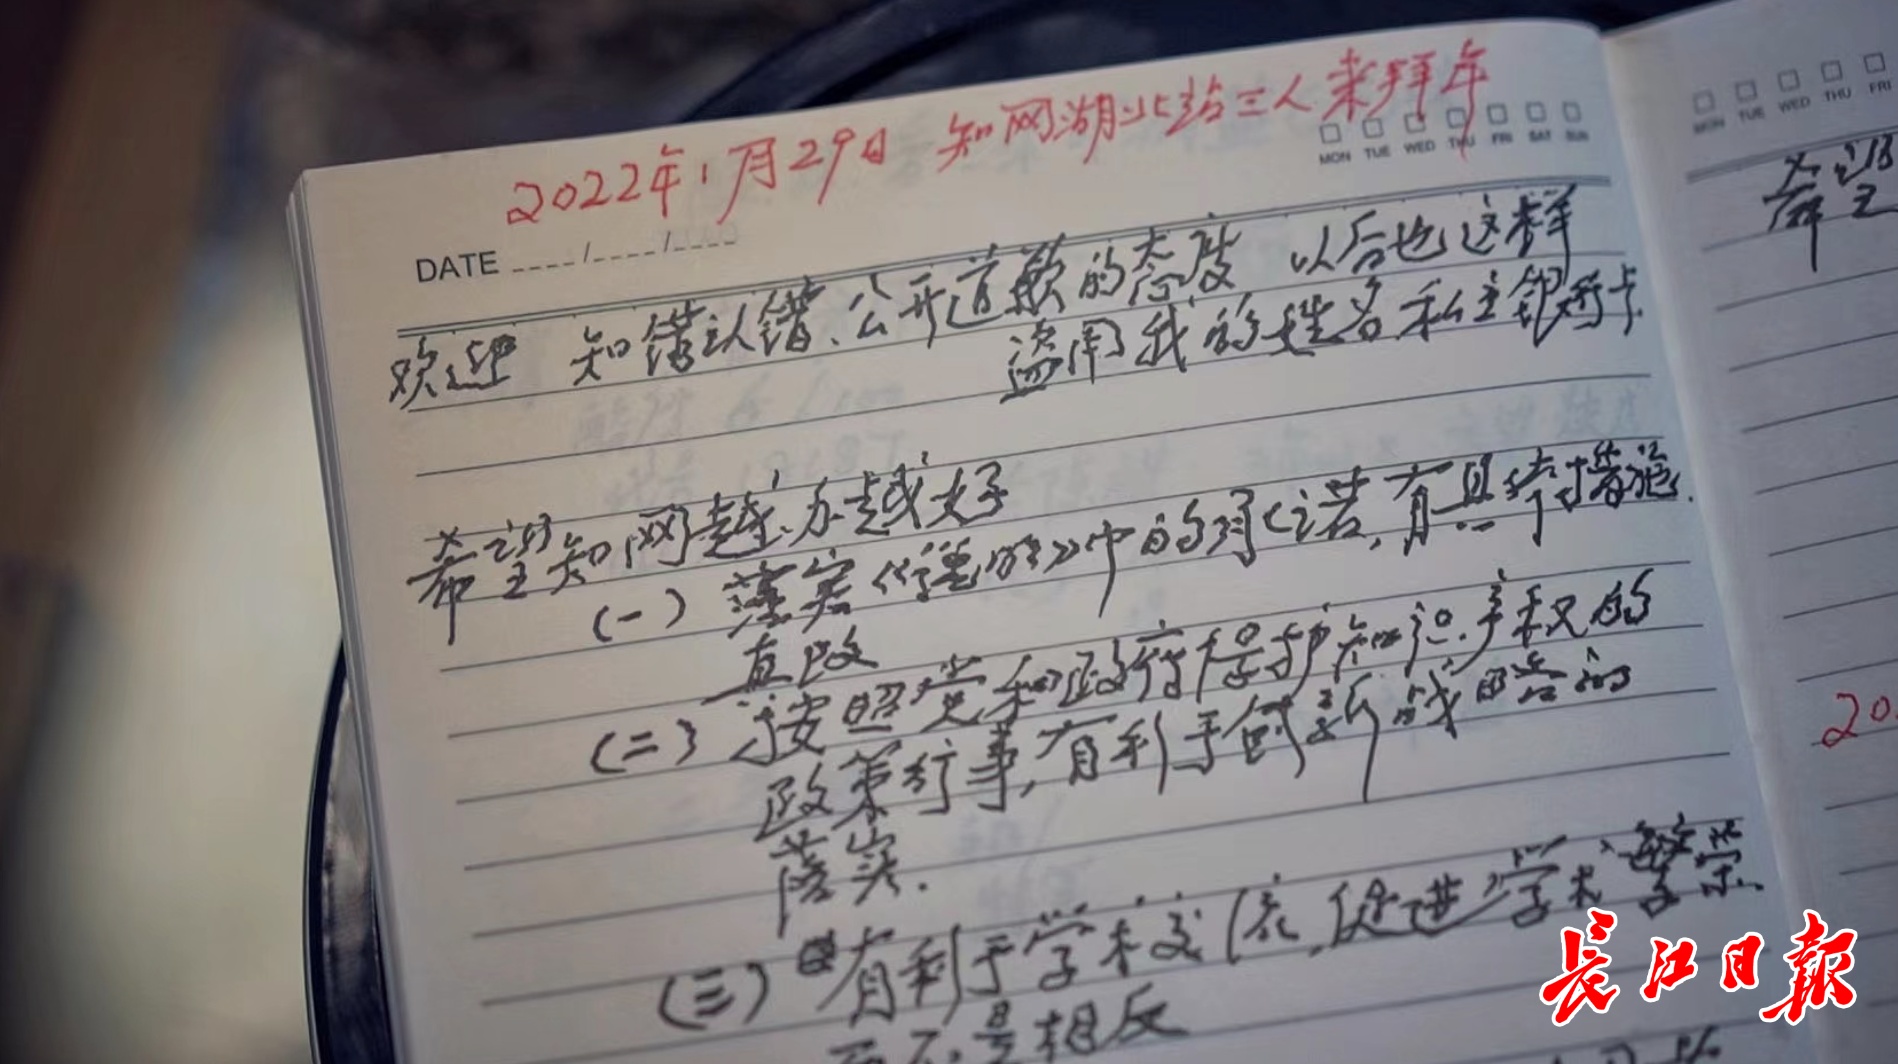 2022年1月29日 知网湖北站三人来拜年
MON TUE WED THU FRI SAT SUN
DATE ____/____/____
欢迎 知错认错、公开道歉的态度 以后也这样
盗用我的姓名私立银行卡
希望知网越办越好
(一) 落实《说明》中的承诺,有具体措施.
真改
(二) 按照党和政府保护知识产权的
政策行事,有利于创新战略的
落实.
(三) 有利于学术交流,促进学术繁荣.
而不是相反
MON TUE WED THU FRI
希望
20
长江日报